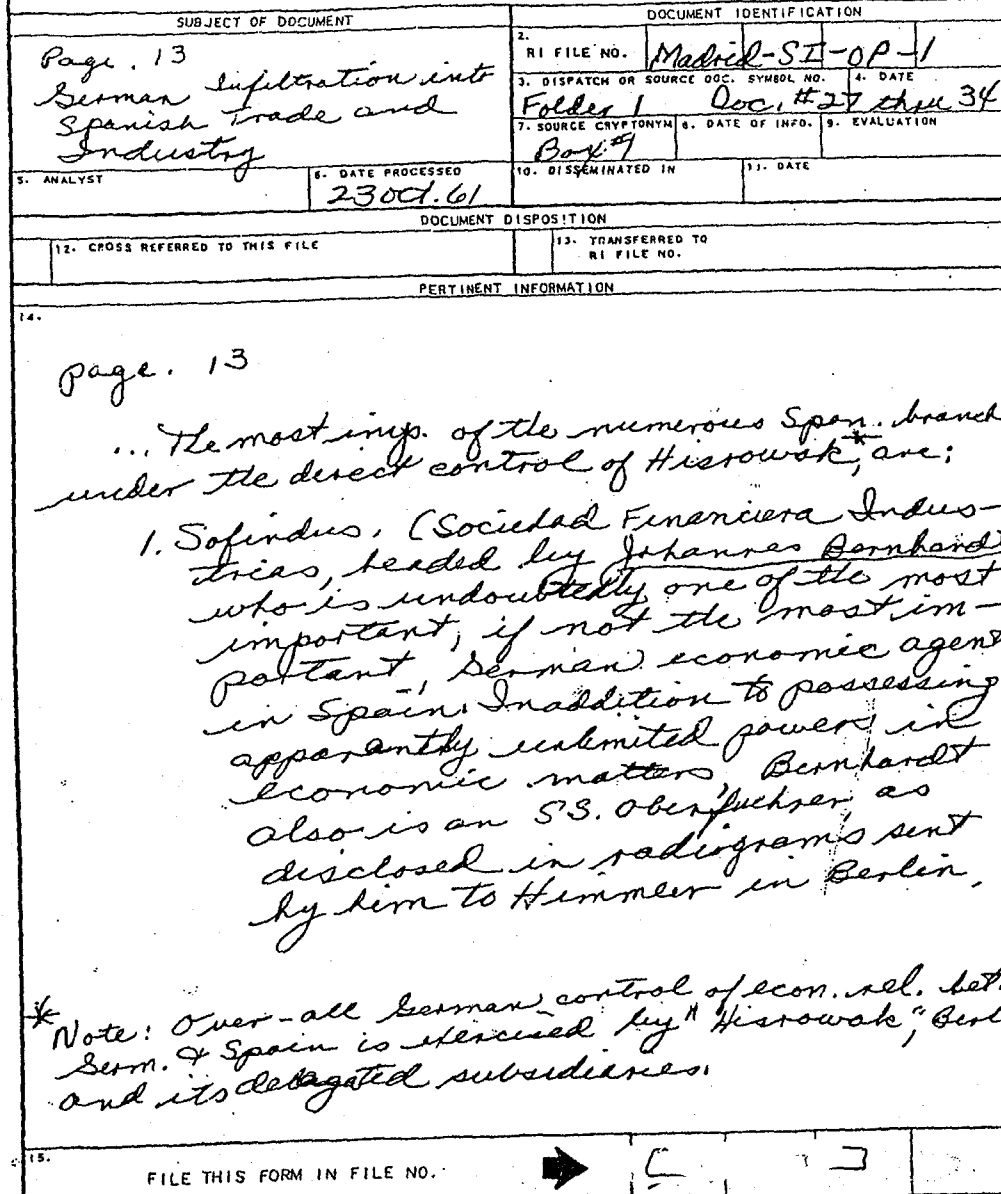 SUBJECT OF DOCUMENT
DOCUMENT IDENTIFICATION
Page. 13
German Infiltration into
Spanish Trade and
Industry
2.
RI FILE NO.
Madrid-SI-OP-1
3. DISPATCH OR SOURCE DOC. SYMBOL NO.
4. DATE
Folder 1 Doc. #27 thru 34
7. SOURCE CRYPTONYM
8. DATE OF INFO.
9. EVALUATION
Box #1
5. ANALYST
6. DATE PROCESSED
23 Oct. 61
10. DISSEMINATED IN
11. DATE
DOCUMENT DISPOSITION
12. CROSS REFERRED TO THIS FILE
13. TRANSFERRED TO
RI FILE NO.
PERTINENT INFORMATION
14.
page. 13
... The most imp. of the numerous Span. branch
under the direct control of Hisrowak*, are:
1. Sofindus, (Sociedad Financiera Indus-
trias, headed by Johannes Bernhardt
who is undoubtedly one of the most
important, if not the most im-
portant, German economic agent
in Spain. In addition to possessing
apparantly unlimited powers in
economic matters, Bernhardt
also is an SS. Oberfuehrer, as
disclosed in radiograms sent
by him to Himmler in Berlin.
* Note: Over-all German control of econ. rel. bet.
Germ. & Spain is exercised by "Hisrowak," Berl
and its delegated subsidiaries.
15.
FILE THIS FORM IN FILE NO.